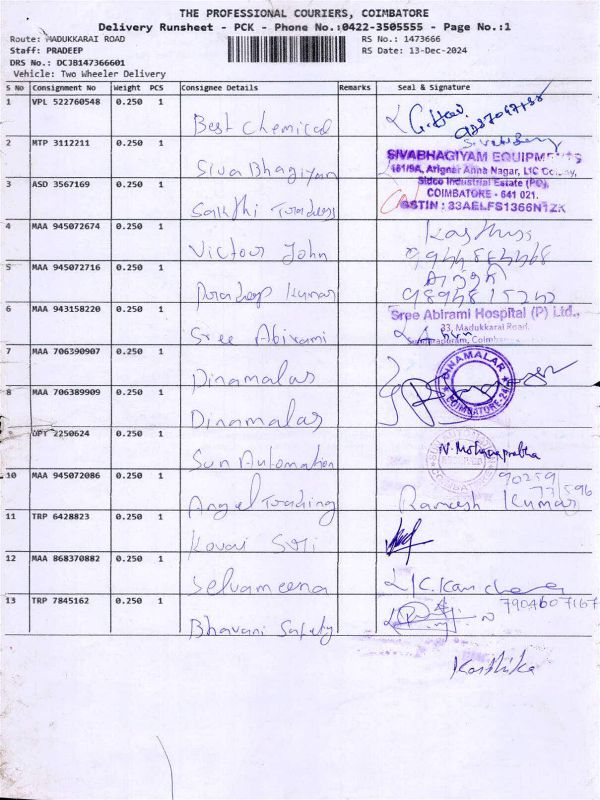 THE PROFESSIONAL COURIERS, COIMBATORE
Delivery Runsheet - PCK - Phone No.:0422-3505555 - Page No.:1
Route: MADUKKARAI ROAD RS No.: 1473666
Staff: PRADEEP RS Date: 13-Dec-2024
DRS No.: DCJB147366601
Vehicle: Two Wheeler Delivery
S No Consignment No Weight PCS Consignee Details Remarks Seal & Signature
1 VPL 522760548 0.250 1 Best Chemical
2 MTP 3112211 0.250 1 Siva Bhagiyam
SIVABHAGIYAM EQUIPMENTS
181/9A, Arignar Anna Nagar, LIC Colony,
Sidco Industrial Estate (PO),
COIMBATORE - 641 021.
GSTIN : 33AELFS1366N1ZK
3 ASD 3567169 0.250 1 Sakthi Traders
4 MAA 945072674 0.250 1 Victor John
5 MAA 945072716 0.250 1 Pradeep Kumar
6 MAA 943158220 0.250 1 Sree Abirami
Sree Abirami Hospital (P) Ltd.,
33, Madukkarai Road,
7 MAA 706390907 0.250 1 Dinamalar
DINAMALAR
COIMBATORE-24
8 MAA 706389909 0.250 1 Dinamalar
OPT 2250624 0.250 1 Sun Automation N. Mohanaprabha
10 MAA 945072086 0.250 1 Angel Trading Ramesh Kumar
90259
77596
11 TRP 6428823 0.250 1 Kovai
12 MAA 868370882 0.250 1 Selvameena K. Kanchana
13 TRP 7845162 0.250 1 Bhavani Safety 7904607167
Karthika